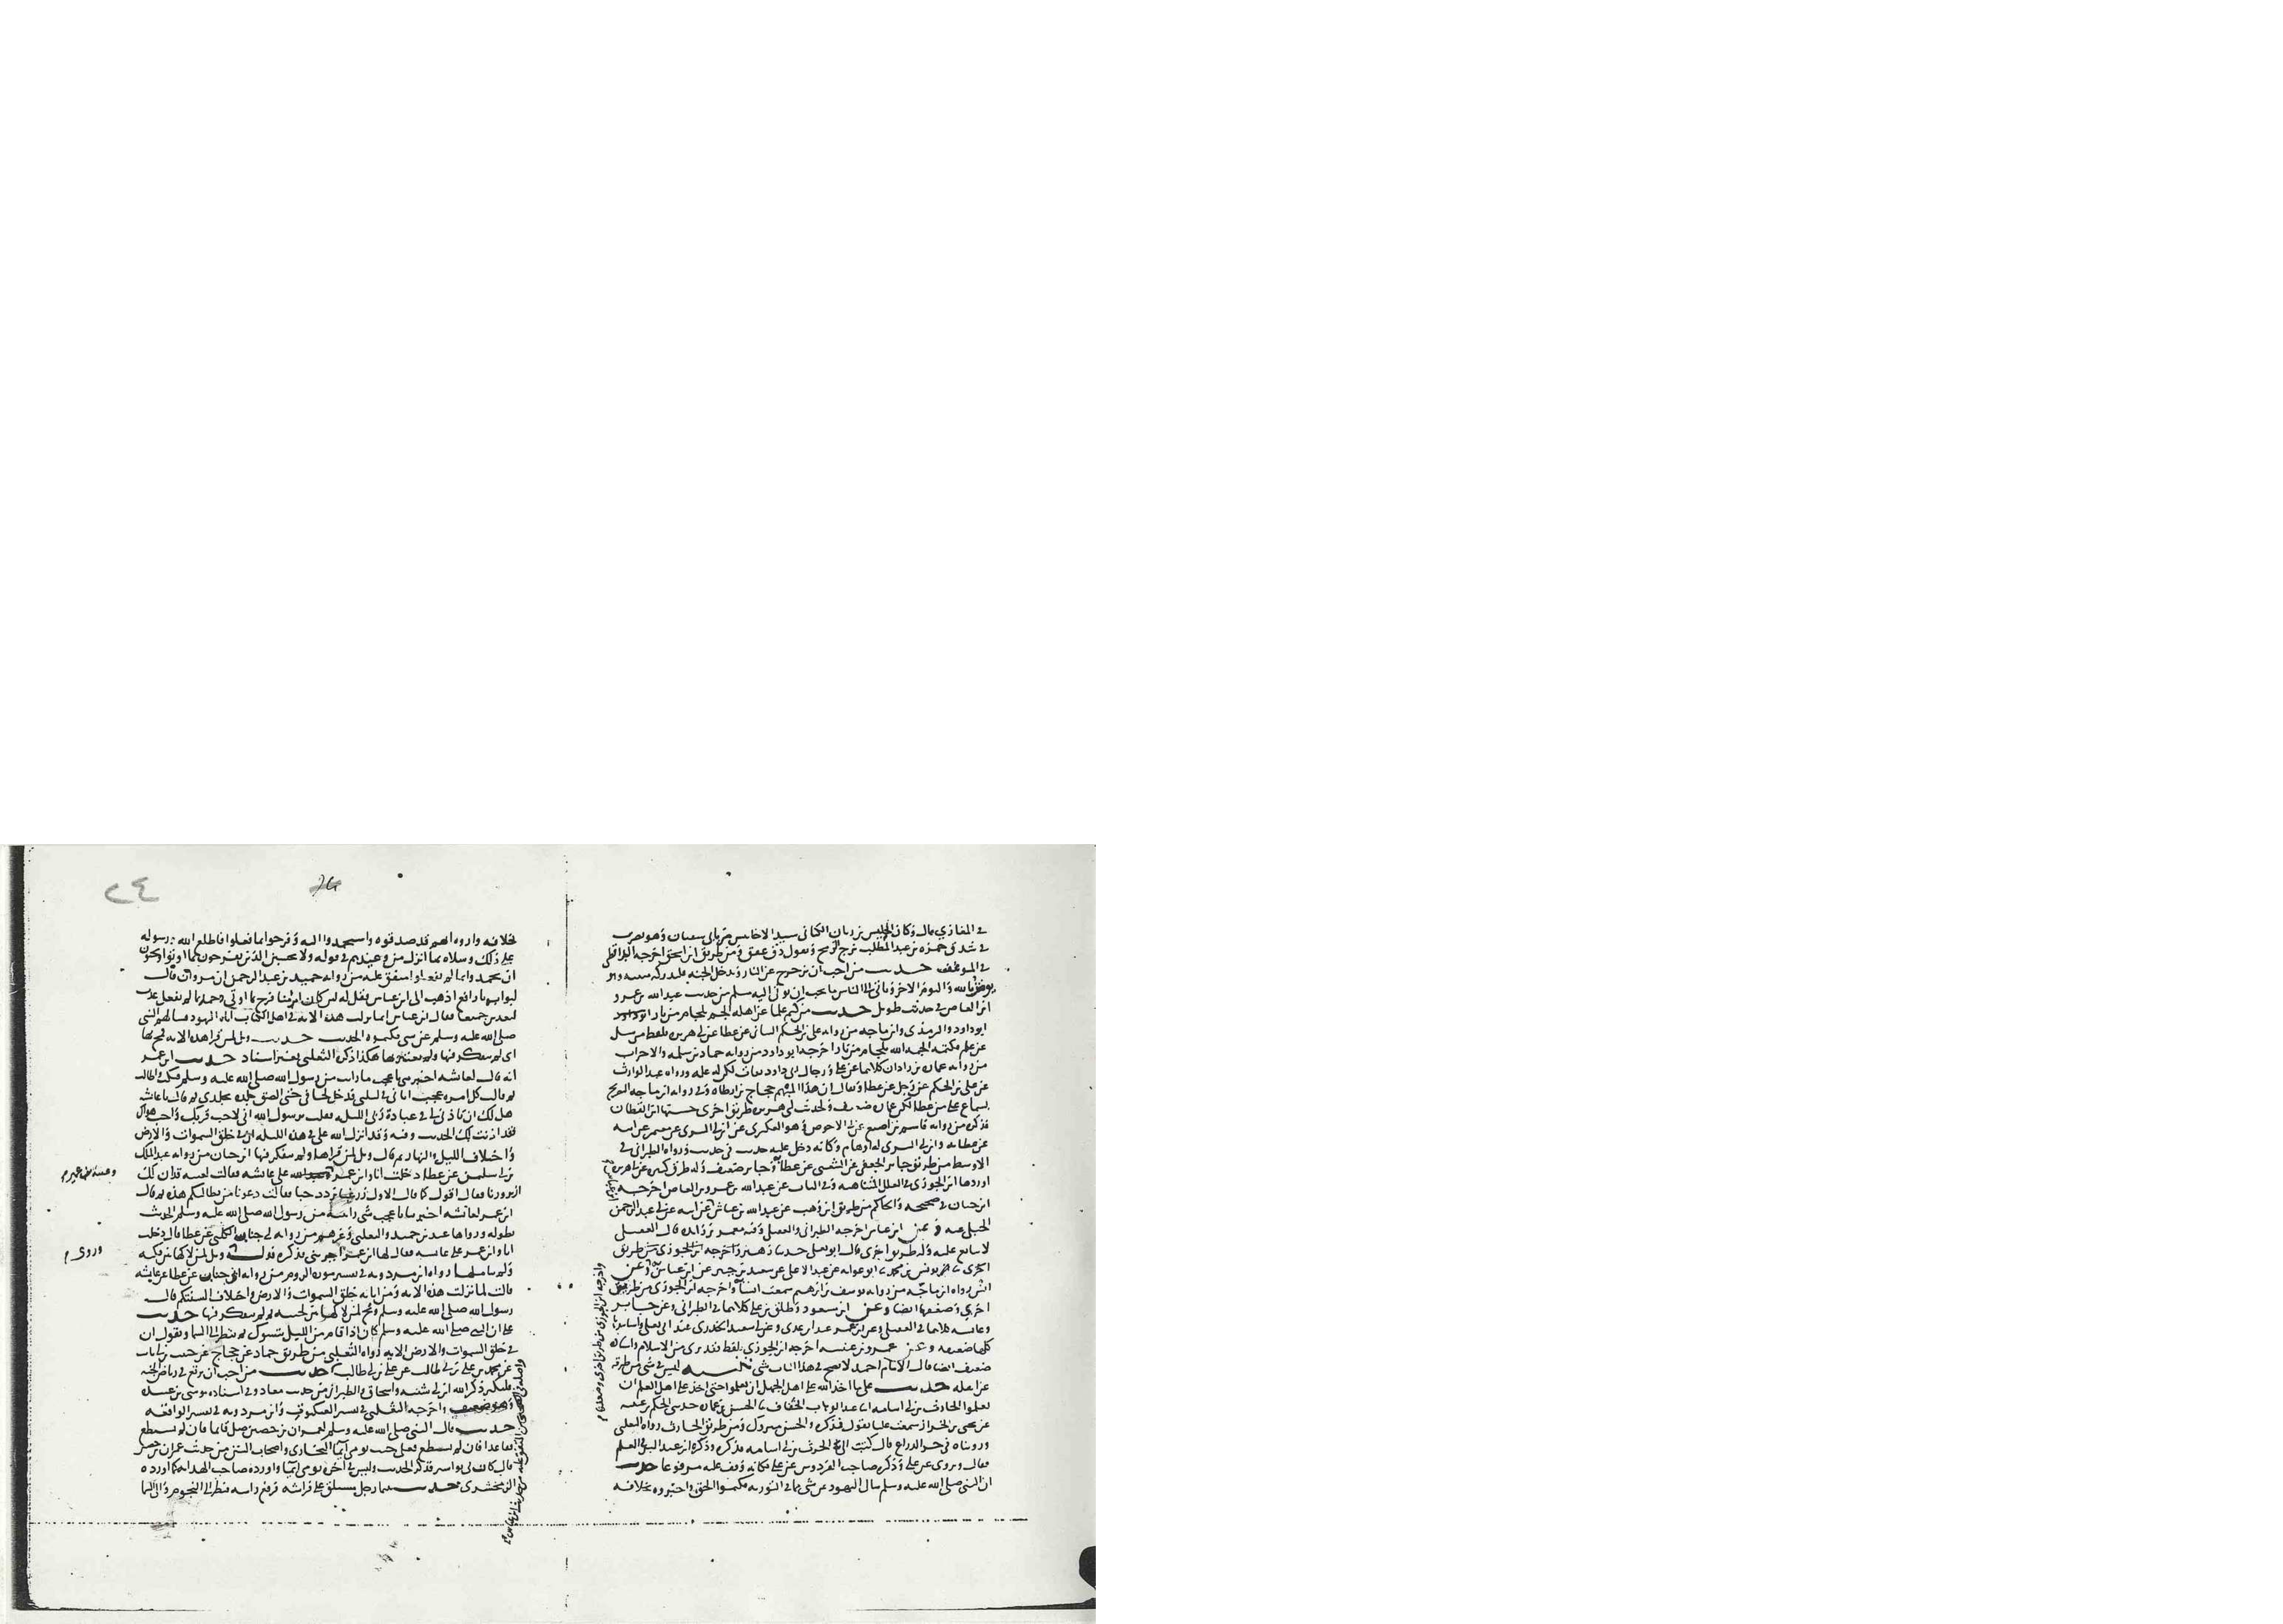 في المغازي قال وكان الحليس بن زبان الكناني سيد الاحابيش مر بابي سفيان وهو يضرب
في شدق حمزه بن عبد المطلب بزج الرمح ويقول ذق عقق ومن طريق ابن اسحق اخرجه الدارقطني
في الموتلف حديث من احب ان يزحزح عن النار ويدخل الجنه فلتدركه منيته وهو
يومن بالله واليوم الاخر وياتي الى الناس ما يحب ان يوتى اليه مسلم من حديث عبد الله بن عمرو
ابن العاص في حديث طويل حديث من كتم علما عن اهله الجم بلجام من نار
ابو داود والترمذي وابن ماجه من روايه علي بن الحكم البناني عن عطا عن ابي هريره بلفظ من سئل
عن علم فكتمه الجمه الله بلجام من نار اخرجه ابو داود من روايه حماد بن سلمه والاخران
من روايه عماره بن زاذان كلاهما عن علي ورجال ابي داود ثقات لكن له عله ورواه عبد الوارث
عن علي بن الحكم عن رجل عن عطا ويقال ان هذا المبهم حجاج بن ارطاه وفي روايه ابن ماجه التصريح
بسماع علي من عطا لكن عماره ضعيف ولحديث ابي هريره طريق اخرى حسنها ابن القطان
فذكره من روايه قاسم بن اصبغ عن ابي الاحوص وهو العكبري عن ابن ابي السري عن معتمر عن ابيه
عن عطا به وابن ابي السري له اوهام وكانه دخل عليه حديث في حديث ورواه الطبراني في
الاوسط من طريق جابر الجعفي عن الشعبي عن عطا وجابر ضعيف وله طرق كثيره عن ابي هريره
اوردها ابن الجوزي في العلل المتناهيه وفي الباب عن عبد الله بن عمرو بن العاص اخرجه
ابن حبان في صحيحه والحاكم من طريق ابن وهب عن عبد الله بن عياش عن ابيه عن ابي عبد الرحمن
الحبلي عنه وعن ابن عباس اخرجه الطبراني والعقيلي وفيه معمر بن زائده قال العقيلي
لا يتابع عليه وله طريق اخرى قال ابو يعلى حدثنا زهير واخرجه ابن الجوزي من طريق
اخرى ثنا يونس بن محمد ثنا ابو عوانه عن عبد الاعلى عن سعيد بن جبير عن ابن عباس وعن
انس رواه ابن ماجه من روايه يوسف بن ابراهيم سمعت انسا واخرجه ابن الجوزي من طريق
اخرى وضعفها ايضا وعن ابن مسعود وطلق بن علي كلاهما في الطبراني وعن جابر
وعائشه كلاهما في العقيلي وعن ابن عمر عند ابن عدي وعن ابي سعيد الخدري عند ابي يعلى واسانيد
كلها ضعيفه وعن عمرو بن عبسه اخرجه ابن الجوزي بلفظ فقد برئ من الاسلام واسناده
ضعيف ايضا قال الامام احمد لا يصح في هذا الباب شي تنبيه ليس في شي من طرقه
عن اهله حديث علي ما اخذ الله على اهل الجهل ان يتعلموا حتى اخذ على اهل العلم ان
يعلموا الحارث بن ابي اسامه ثنا عبد الوهاب الخفاف ثنا الحسن بن عماره حدثني الحكم بن عتيبه
عن يحيى بن الجزار سمعت عليا يقول فذكره والحسن متروك ومن طريق الحارث رواه الثعلبي
فقال ويروى عن علي وذكره صاحب الفردوس عن علي فكانه وقف عليه مرفوعا حديث
ان النبي صلى الله عليه وسلم سال اليهود عن شي مما في التوريه فكتموا الحق واخبروه بخلافه
واخرجه ابن الجوزي من طريق اخرى وضعفها
٢٤
بخلافه واروه انهم قد صدقوه واستحمدوا اليه وفرحوا بما فعلوا فاطلع الله رسوله
على ذلك وسلاه بما انزل من وعيدهم في قوله ولا تحسبن الذين يفرحون بما اوتوا ويحبون
ان يحمدوا بما لم يفعلوا متفق عليه من روايه حميد بن عبد الرحمن ان مروان قال
لبوابه يا رافع اذهب الى ابن عباس فقل له لئن كان امرئ منا فرح بما اوتي وحمد بما لم يفعل عذب
لنعذبن جميعا فقال ابن عباس انما نزلت هذه الايه في اهل الكتاب اتاه اليهود فسالهم النبي
صلى الله عليه وسلم عن شي فكتموه الحديث حديث ويل لمن قرا هذه الايه فمج بها
اي لم يتفكر فيها ولم يعتبر بها هكذا ذكره الثعلبي بغير اسناد حديث ابن عمر
انه قال لعائشه اخبريني باعجب ما رايت من رسول الله صلى الله عليه وسلم فبكت واطالت
ثم قالت كل امره عجب اتاني في ليلتي فدخل لحافي حتى الصق جلده بجلدي ثم قال يا عائشه
هل لك ان تاذني لي في عباده ربي الليله فقلت يا رسول الله اني لاحب قربك واحب هواك
فقد اذنت لك الحديث وفيه وقد انزل الله علي في هذه الليله ان في خلق السموات والارض
واختلاف الليل والنهار ثم قال ويل لمن قراها ولم يتفكر فيها ابن حبان من روايه عبد الملك
بن ابي سليمن عن عطا دخلت انا وابن عمير على عائشه فقالت لعبيد قد ان لك
ان تزورنا فقال اقول كما قال الاول زر غبا تزدد حبا فقالت دعونا من بطالتكم هذه ثم قال
ابن عمير لعائشه اخبرينا باعجب شي رايته من رسول الله صلى الله عليه وسلم الحديث
بطوله ورواها عبد بن حميد والثعلبي وغيرهم من روايه ابي جناب الكلبي عن عطا قال دخلت
انا وابن عمر على عائشه فقال لها ابن عمر اخبريني فذكره قوله ويل لمن لاكها بين فكيه
ولم يتاملها رواه ابن مردويه في تفسير سوره الروم من روايه ابي جناب عن عطا عن عائشه
قالت لما نزلت هذه الايه ومن اياته خلق السموات والارض واختلاف السنتكم قال
رسول الله صلى الله عليه وسلم ويح لمن لاكها بين لحييه ثم لم يتفكر فيها حديث
علي ان النبي صلى الله عليه وسلم كان اذا قام من الليل يتسوك ثم ينظر الى السما ويقول ان
في خلق السموات والارض الايه رواه الثعلبي من طريق حماد عن حجاج عن حبيب بن ابي ثابت
عن محمد بن علي بن ابي طالب عن علي بن ابي طالب حديث من احب ان يرتع في رياض الجنه
فليكثر ذكر الله ابن ابي شيبه واسحاق والطبراني من حديث معاذ وفي اسناده موسى بن عبيده
وهو ضعيف واخرجه الثعلبي في تفسير العنكبوت وابن مردويه في تفسير الواقعه
حديث قال النبي صلى الله عليه وسلم لعمران بن حصين صل قائما فان لم تستطع
فقاعدا فان لم تستطع فعلى جنب تومئ ايما البخاري واصحاب السنن من حديث عمران بن حصين
قال كان بي بواسير فذكر الحديث وليس في اخره تومئ ايما واورده صاحب الهدايه كما اورده
الزمخشري حديث بينما رجل مستلق على فراشه فرفع راسه فنظر الى النجوم والى السما
وروى